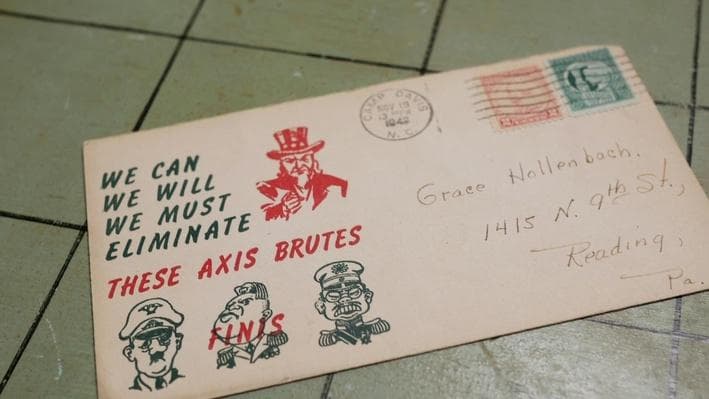 WE CAN
WE WILL
WE MUST
ELIMINATE
THESE AXIS BRUTES
FINIS
CAMP DAVIS
NOV 19
1942
N. C.
Grace Hollenbach.
1415 N. 9th St.,
Reading,
Pa.